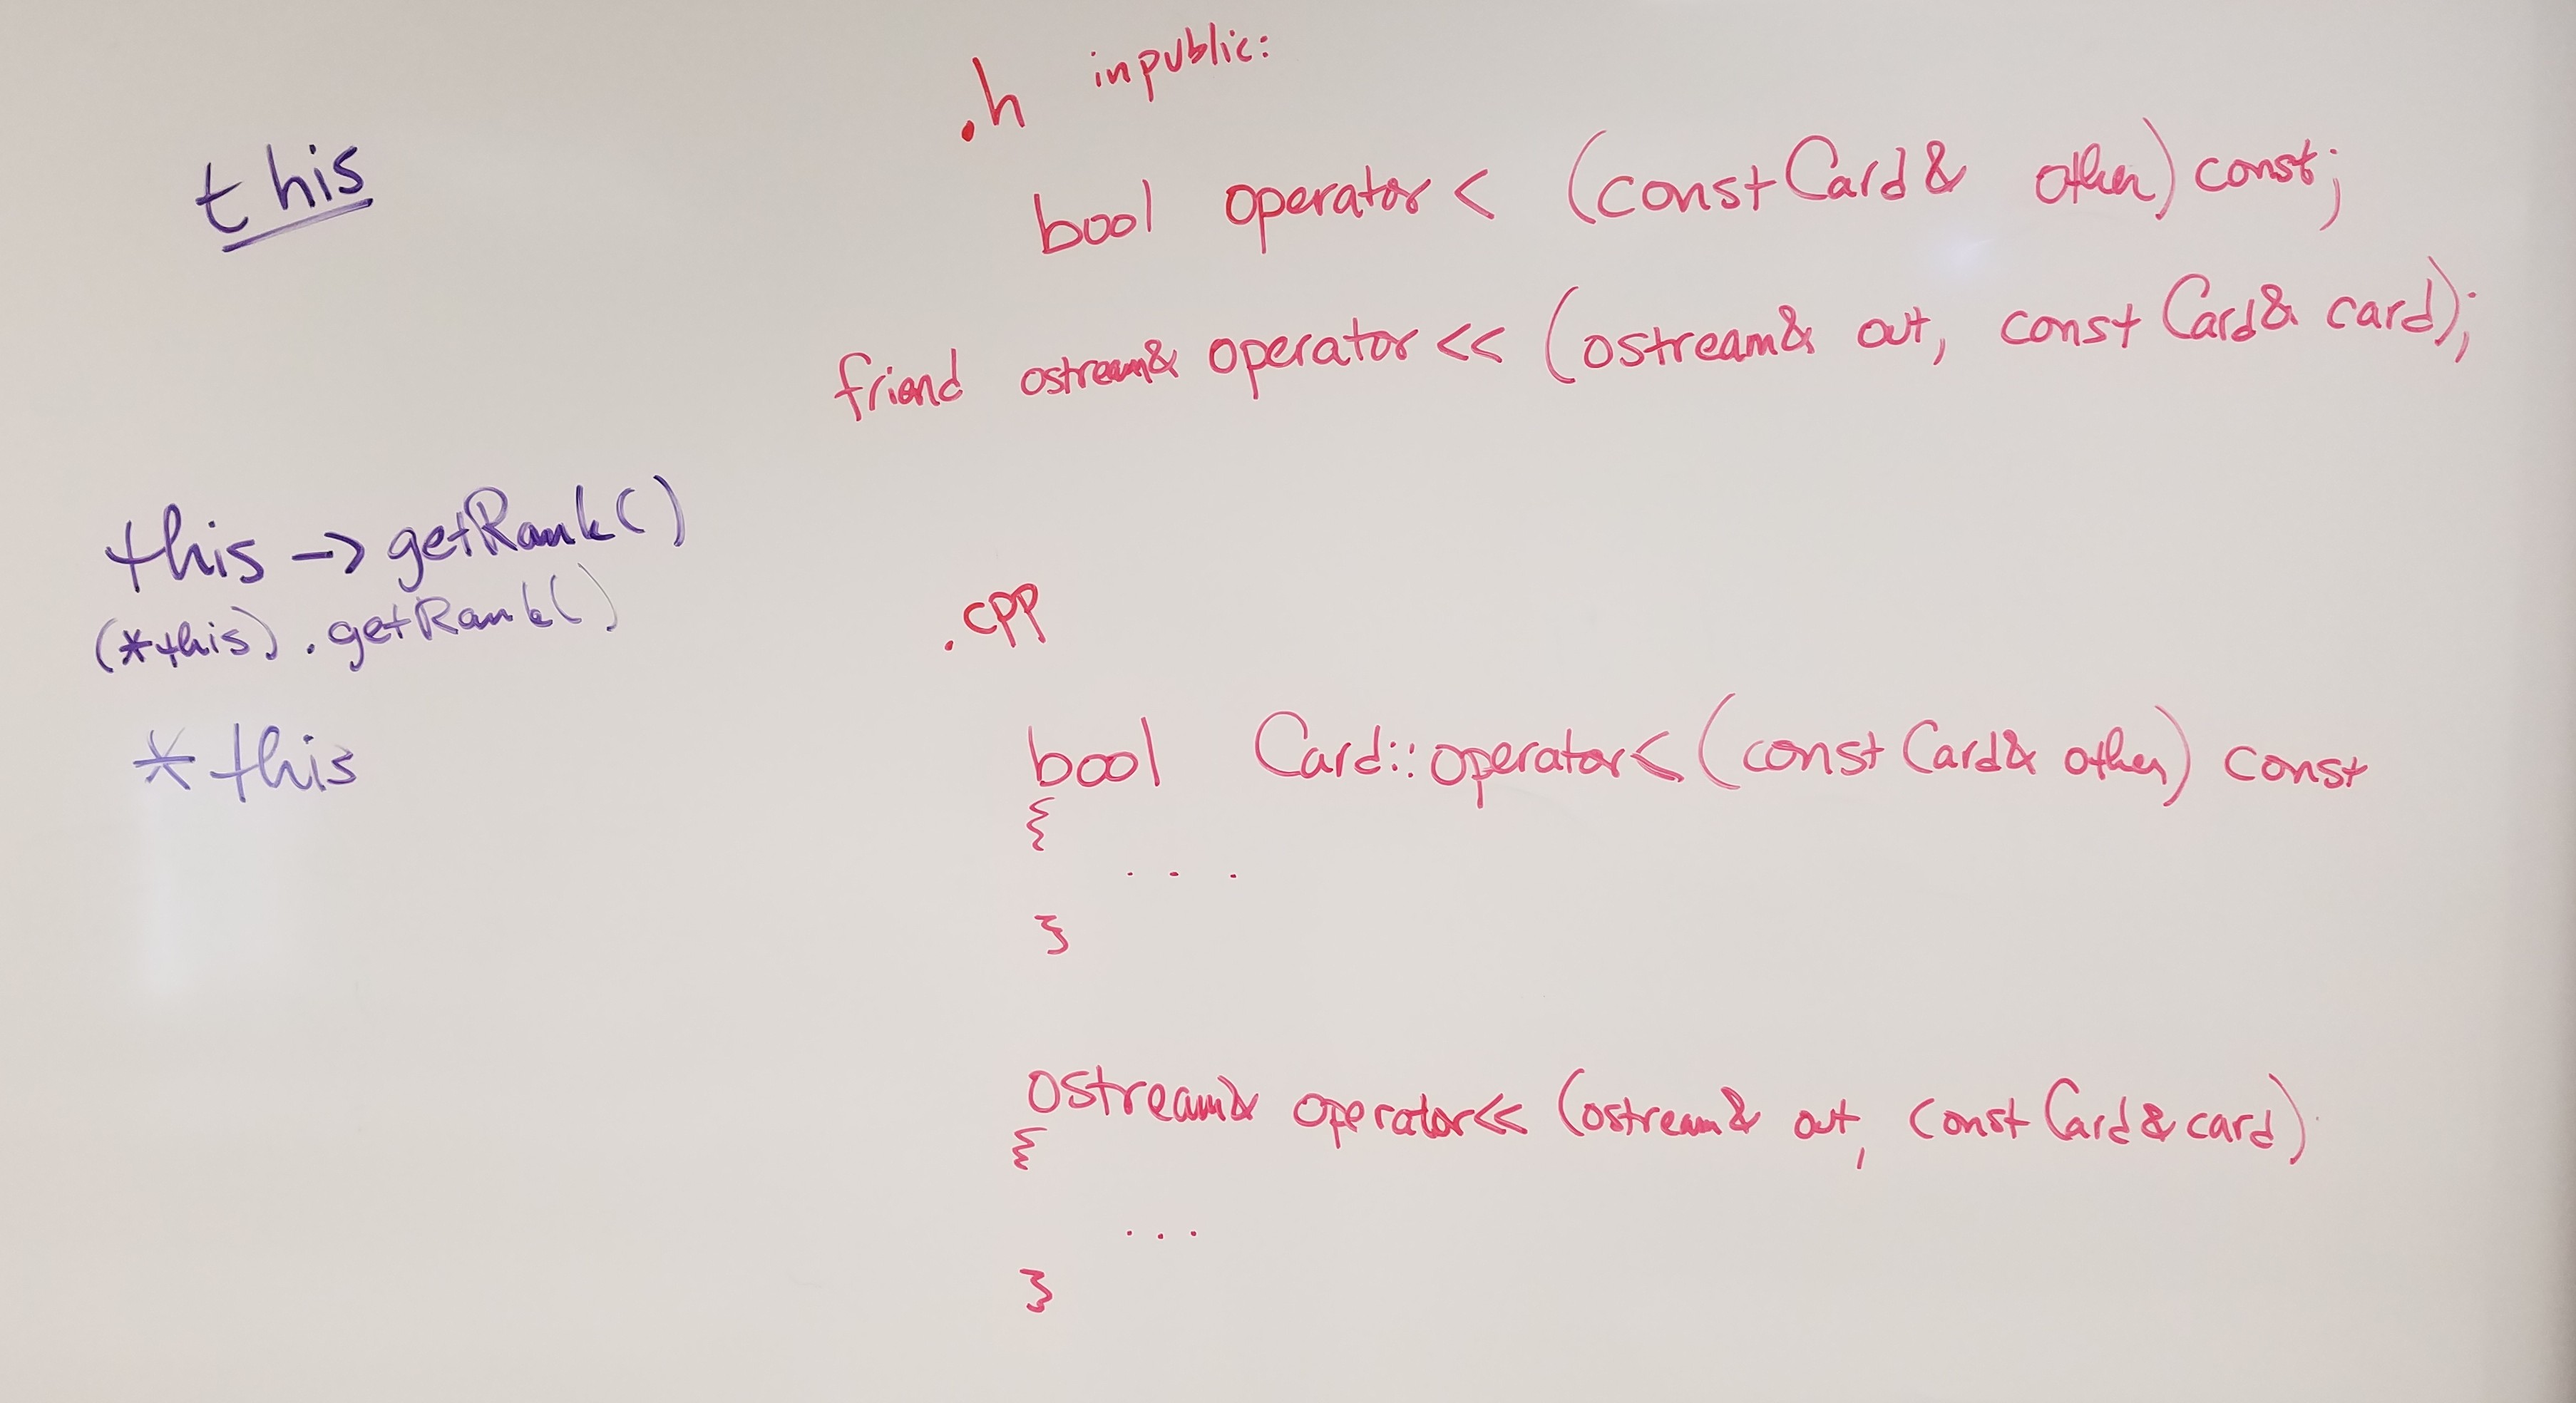 this
this -> getRank()
(*this).getRank()
*this
.h in public:
bool operator< (const Card& other) const;
friend ostream& operator<< (ostream& out, const Card& card);
.cpp
bool Card::operator< (const Card& other) const
{
...
}
ostream& operator<< (ostream& out, const Card& card)
{
...
}